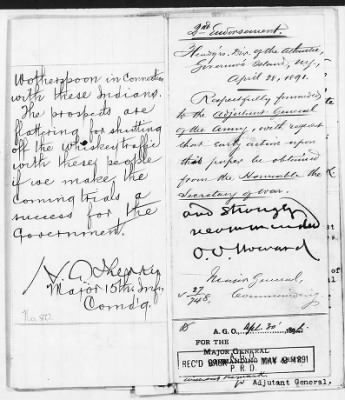 Wotherspoon in connection
with these Indians.
The prospects are
flattering for shutting
off the whiskey traffic
with these people
if we make the
coming trials a
success for the
Government.
Major 15th Inf.
Comd'g.
No. 80.
2nd Endorsement.
Headqrs. Div. of the Atlantic,
Governor's Island, N.Y.,
April 28, 1891.
Respectfully forwarded
to the Adjutant General
of the Army, with request
that early action upon
this paper be obtained
from the Honorable the
Secretary of War.
and strongly
recommended
O. O. Howard
Major General,
Commanding.
27
748
A.G.O. Apl. 30
FOR THE
MAJOR GENERAL
COMMANDING
REC'D BACK MAY 1891
P R D
Adjutant General,